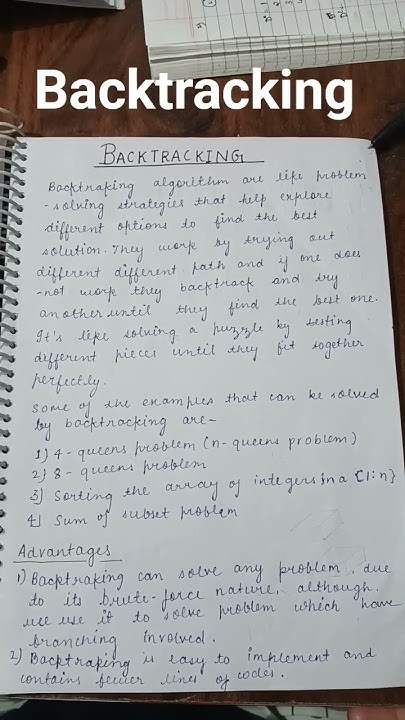 Backtracking
BACKTRACKING
Backtraking algorithm are like problem
-solving strategies that help explore
different options to find the best
solution. They work by trying out
different different path and if one does
-not work they backtrack and try
another until they find the best one.
It's like solving a puzzle by testing
different pieces until they fit together
perfectly.
Some of the examples that can be solved
by backtracking are-
1) 4-queens problem (n-queens problem)
2) 8-queens problem
3) Sorting the array of integers in a [1:n}
4) Sum of subset problem
Advantages
1) Backtraking can solve any problem. due
to its brute-force nature, although.
we use it to solve problem which have
branching involved.
2) Backtraking is easy to implement and
contains fewer lines of codes.